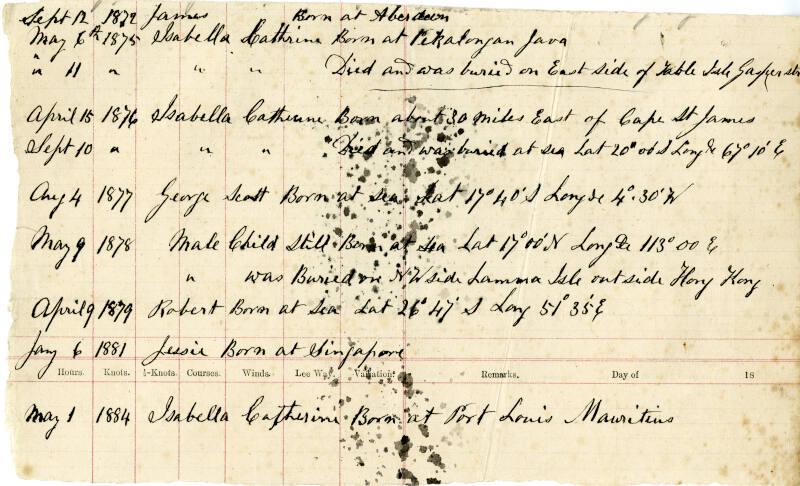 Sept 12 1872 James Born at Aberdeen
May 6th 1875 Isabella Cathrine Born at Pekalongan Java
" 11 " " " Died and was buried on East side of Table Isle Gasper str
April 15 1876 Isabella Catherine Born about 30 miles East of Cape St James
Sept 10 " " " Died and was buried at sea Lat 20° 00' S Longde 67° 10' E
Aug 4 1877 George Scott Born at sea Lat 17° 40' S Longde 4° 30' W
May 9 1878 Male Child Still Born at Sea Lat 17° 00' N Longde 113° 00 E
" was Buried on N W side Lamma Isle outside Hong Kong
April 9 1879 Robert Born at Sea Lat 26° 47' S Long 51° 35' E
Jany 6 1881 Jessie Born at Singapore
Hours. Knots. ½-Knots. Courses. Winds. Lee Way. Variation. Remarks. Day of 18
May 1 1884 Isabella Catherine Born at Port Louis Mauritius